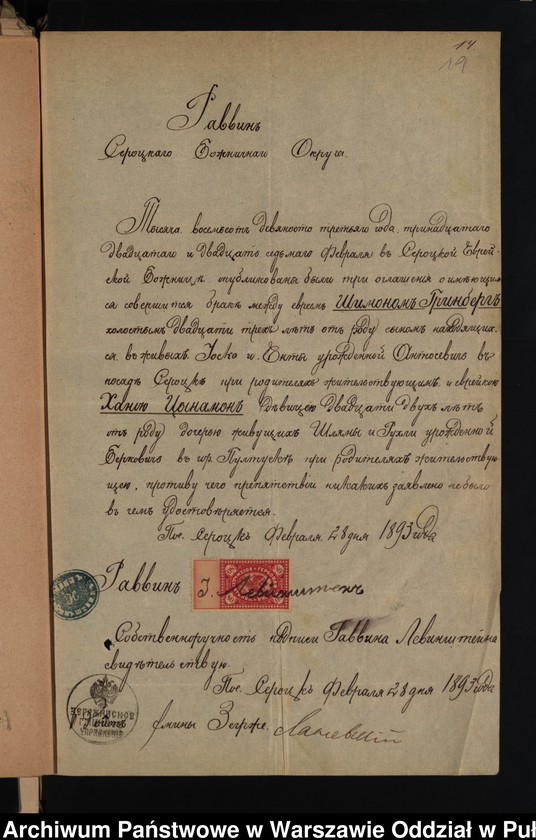 14
19
Раввинъ
Сероцкаго Божничнаго Округа.
Тысяча восемьсотъ девяносто третьяго года, тринадцатаго
двадцатаго и двадцать седьмаго Февраля въ Сероцкой Еврей-
ской Божницѣ опубликованы были три оглашенія о имѣющим-
ся совершится бракѣ между евреемъ Шимономъ Гринбергъ
холостымъ двадцати трехъ лѣтъ отъ роду сыномъ находящих-
ся въ живыхъ Іоска и Енты урожденной Антосевичъ въ
посадѣ Сероцкѣ при родителяхъ жительствующимъ и еврейкою
Ханою Цынамонъ дѣвицею двадцати двухъ лѣтъ
отъ роду дочерью живущихъ Шлямы и Рухли урожденной
Берковичъ въ гор. Пултускѣ при родителяхъ жительствую-
щею, противу чего препятствій никакихъ заявлено не было
въ чемъ удостовѣряется.
Пос. Сероцкъ Февраля 28 дня 1893 года
Раввинъ І. Левинштейнъ
Собственноручность подписи Раввина Левинштейна
свидѣтельствую.
Пос. Сероцкъ Февраля 28 дня 1893 года
Войтъ гмины Зегрже
Archiwum Państwowe w Warszawie Oddział w Puł